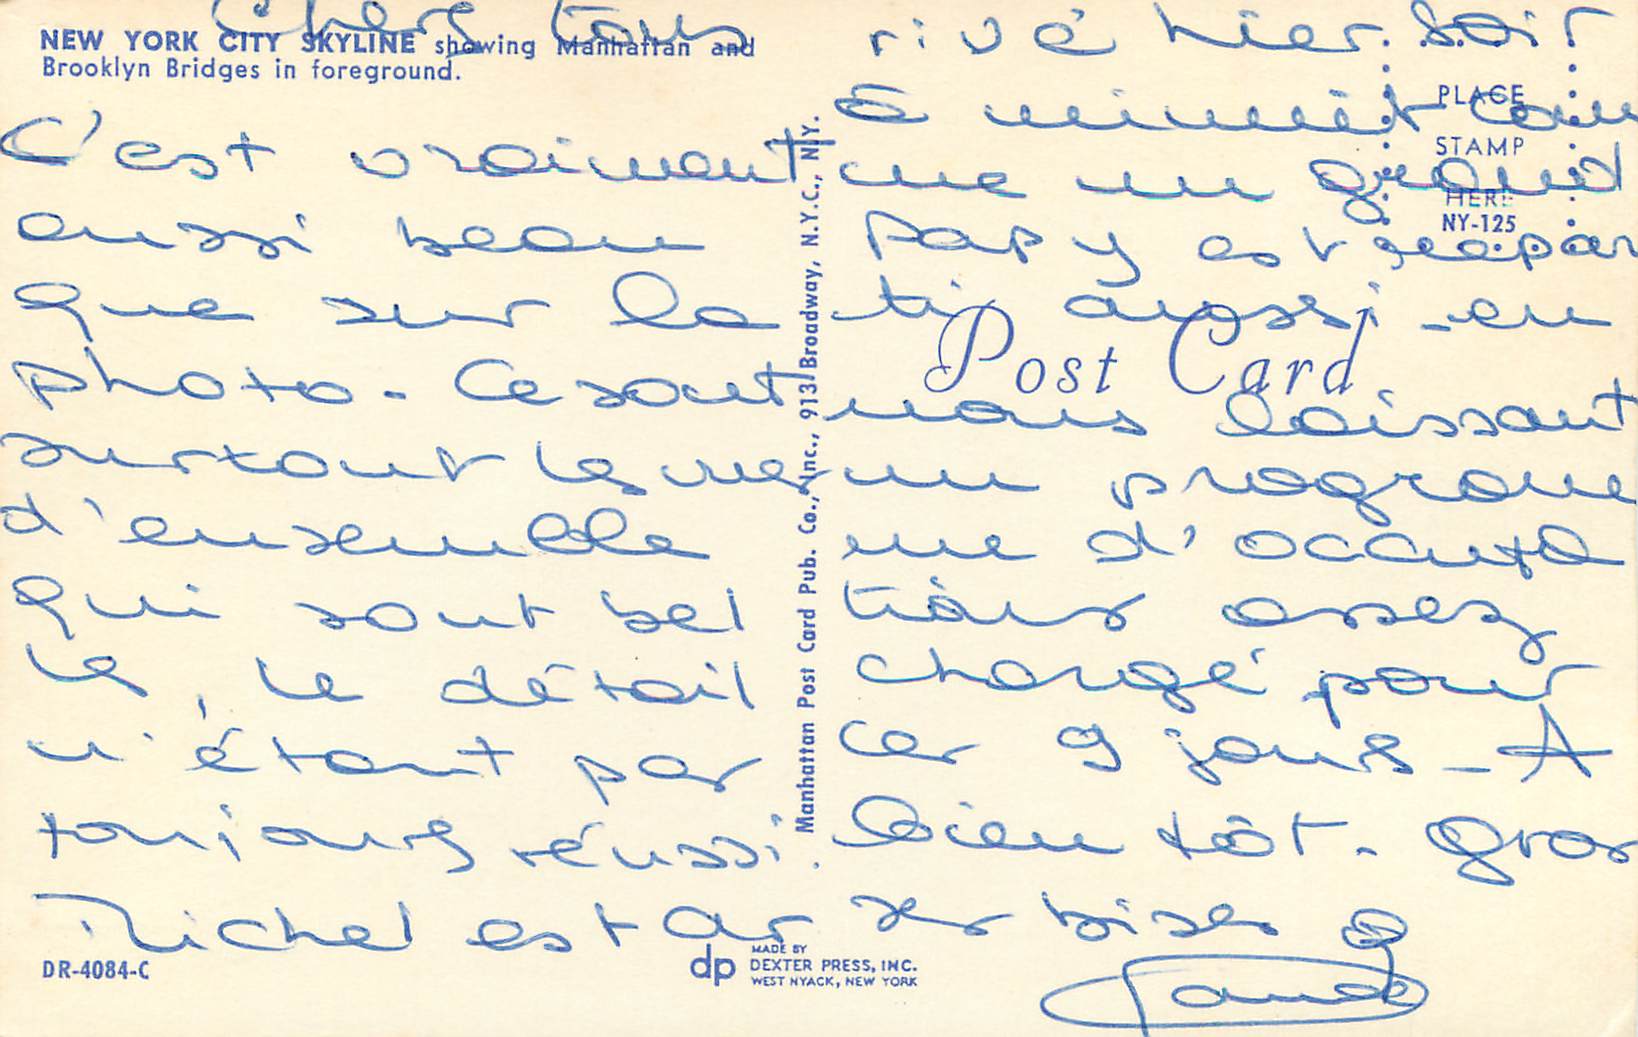 Chers tous
NEW YORK CITY SKYLINE showing Manhattan and
Brooklyn Bridges in foreground.
C'est vraiment
aussi beau
que sur la
photo - Ce sont
surtout les vues
d'ensemble
qui sont bel
les, le détail
n'étant pas
toujours réussi.
Michel est ar
DR-4084-C
Manhattan Post Card Pub. Co., Inc., 913 Broadway, N.Y.C., N.Y.
dp
MADE BY
DEXTER PRESS, INC.
WEST NYACK, NEW YORK
PLACE
STAMP
HERE
NY-125
Post Card
rivé hier soir
à minuit com
me un grand
Papy est repar
ti aussi - en
nous laissant
un program
me d'occupa
tions assez
chargé pour
ces 9 jours - A
bien tôt - Gros
ses bises